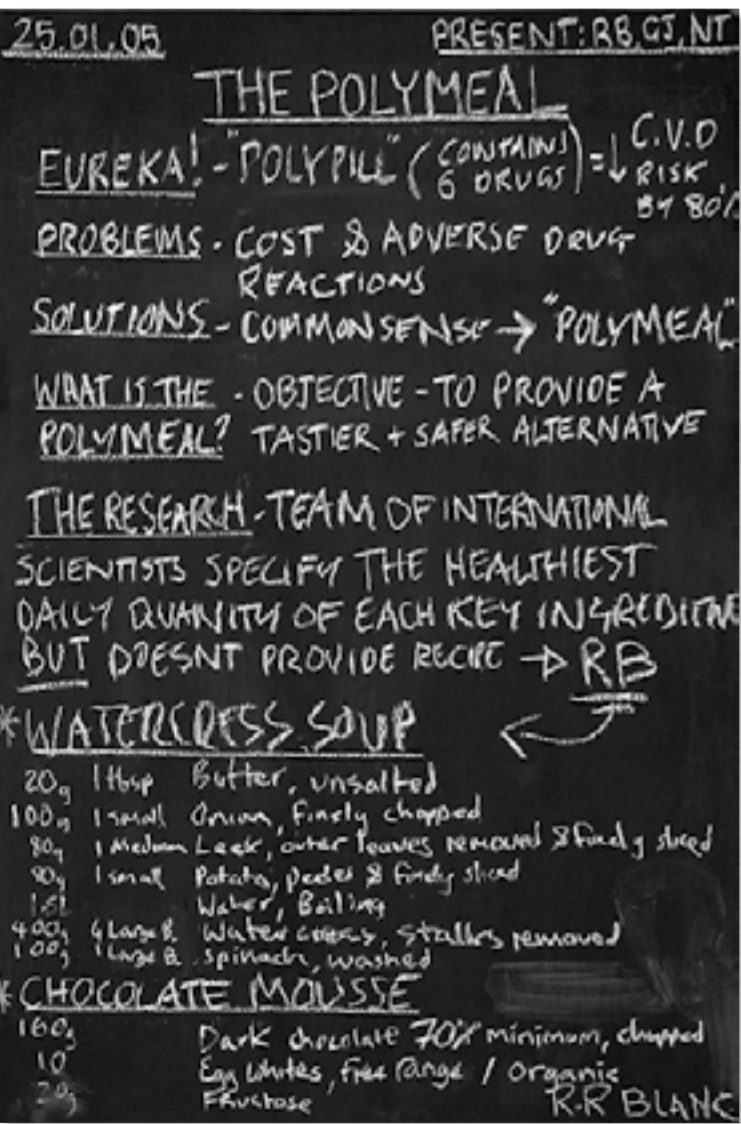 25.01.05 PRESENT: RB, GJ, NT
THE POLYMEAL
EUREKA! - "POLYPILL" (CONTAINS 6 DRUGS) = ↓ C.V.D RISK BY 80%
PROBLEMS - COST & ADVERSE DRUG
REACTIONS
SOLUTIONS - COMMONSENSE → "POLYMEAL"
WHAT IS THE - OBJECTIVE - TO PROVIDE A
POLYMEAL? TASTIER + SAFER ALTERNATIVE
THE RESEARCH - TEAM OF INTERNATIONAL
SCIENTISTS SPECIFY THE HEALTHIEST
DAILY QUANITY OF EACH KEY
BUT DOESNT PROVIDE RECIPE → RB
*WATERCRESS SOUP
20g 1 tbsp Butter, unsalted
100g 1 small Onion, finely chopped
80g 1 Medium Leek, outer leaves removed & finely sliced
1 small Potato, & finely sliced
Water, Boiling
400g 4 Large B. Watercress, stalks removed
100g 1 Large B. spinach, washed
*CHOCOLATE MOUSSE
160g Dark chocolate 70% minimum, chopped
10 Egg whites, free range / organic
20g Fructose
R.R BLANC